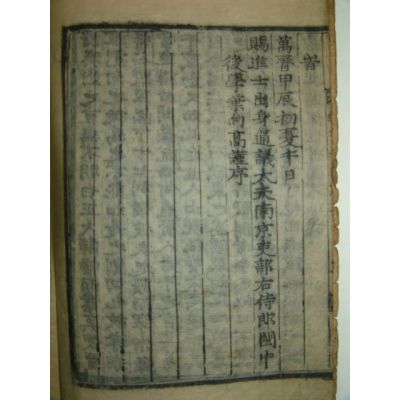 萬曆甲辰初夏午日
賜進士出身通議大夫南京吏部右侍郎閩中
後學葉向高謹序